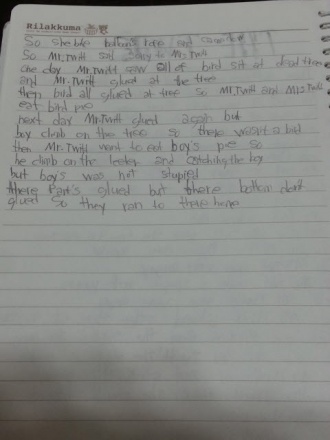 Rilakkuma
So she bite balloon's rope and came
So Mr.Twitt said sorry to Mrs.Twitt
one day Mr.Twitt saw all of bird sit at dead tree
and Mr.Twitt glued at the tree
then bird all glued at tree so Mr.Twitt and Mrs.Twitt
eat bird pie
next day Mr.Twitt glued again but
boy climb on the tree so there wasn't a bird
then Mr.Twitt want to eat boy's pie so
he climb on the and catching the boy
but boy's was not stupied
there Pant's glued but there bottom don't
glued so they ran to there home